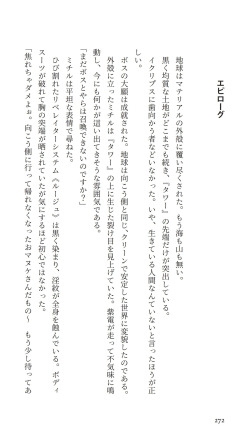 272
エピローグ
地球はマテリアルの外殻に覆い尽くされた。もう海も山も無い。
黒く均質な土地がどこまでも続き、『タワー』の先端だけが突出している。
イクリプスに歯向かう者などいなかった。いや、生きている人間なんていないと言ったほうが正
しい。
ボスの大願は成就された。地球は向こう側と同じ、クリーンで安定した世界に変貌したのである。
外殻に立ったミチルは『タワー』の上に生じた裂け目を見上げていた。紫電が走って不気味に鳴
動し、今にも何かが這い出てきそうな雰囲気である。
「まだボスとやらは召喚できないのですか？」
ミチルは平坦な表情で尋ねた。
ひび割れたリベレイターシステム《ルージュ》は黒く染まり、淫紋が全身を蝕んでいる。ボディ
スーツが破れて胸の突端が晒されていたが気にするほど初心ではなかった。
「焦れちゃダメよぉ。向こう側に行って帰れなくなったおマヌケさんだもの～　もう少し待ってあ